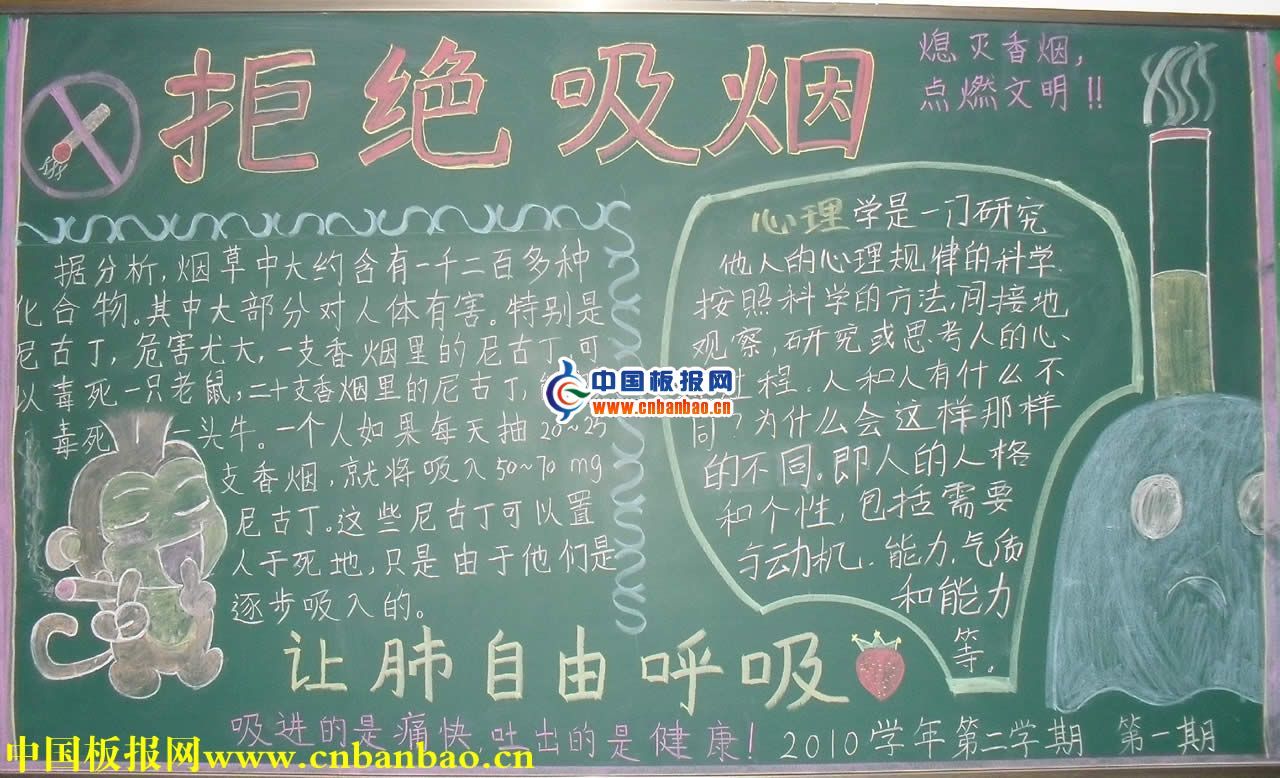 拒绝吸烟
熄灭香烟，
点燃文明!!
据分析，烟草中大约含有一千二百多种
化合物。其中大部分对人体有害。特别是
尼古丁，危害尤大，一支香烟里的尼古丁可
以毒死一只老鼠，二十支香烟里的尼古丁，
毒死一头牛。一个人如果每天抽20~25
支香烟，就将吸入50~70mg
尼古丁。这些尼古丁可以置
人于死地，只是由于他们是
逐步吸入的。
心理学是一门研究
他人的心理规律的科学.
按照科学的方法，间接地
观察，研究或思考人的心
过程.人和人有什么不
同？为什么会这样那样
的不同。即人的人格
和个性，包括需要
与动机.能力.气质
和能力
等。
让肺自由呼吸
吸进的是痛快，吐出的是健康！
2010学年第二学期 第一期
中国板报网
www.cnbanbao.cn
中国板报网www.cnbanbao.cn